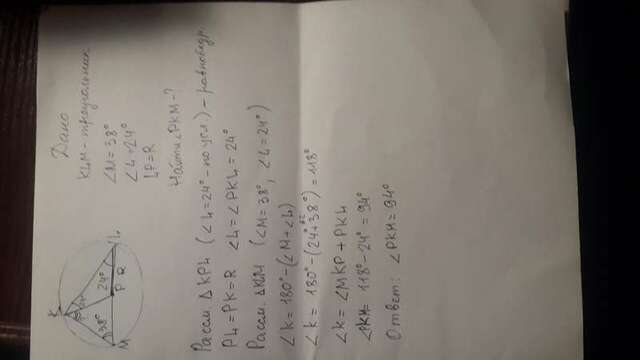 Дано
KLM - треугольник
∠M = 38°
∠L = 24°
LP = R
Найти ∠PKM - ?
K
M
P
R
L
38°
24°
Рассм. △KPL (∠L = 24° - по усл.) - равнобедр.
PL = PK = R ∠L = ∠PKL = 24°
Рассм. △KLM (∠M = 38°, ∠L = 24°)
∠K = 180° - (∠M + ∠L)
∠K = 180° - (24° + 38°) = 118°
62
∠K = ∠MKP + PKL
∠PKM = 118° - 24° = 94°
Ответ: ∠PKM = 94°